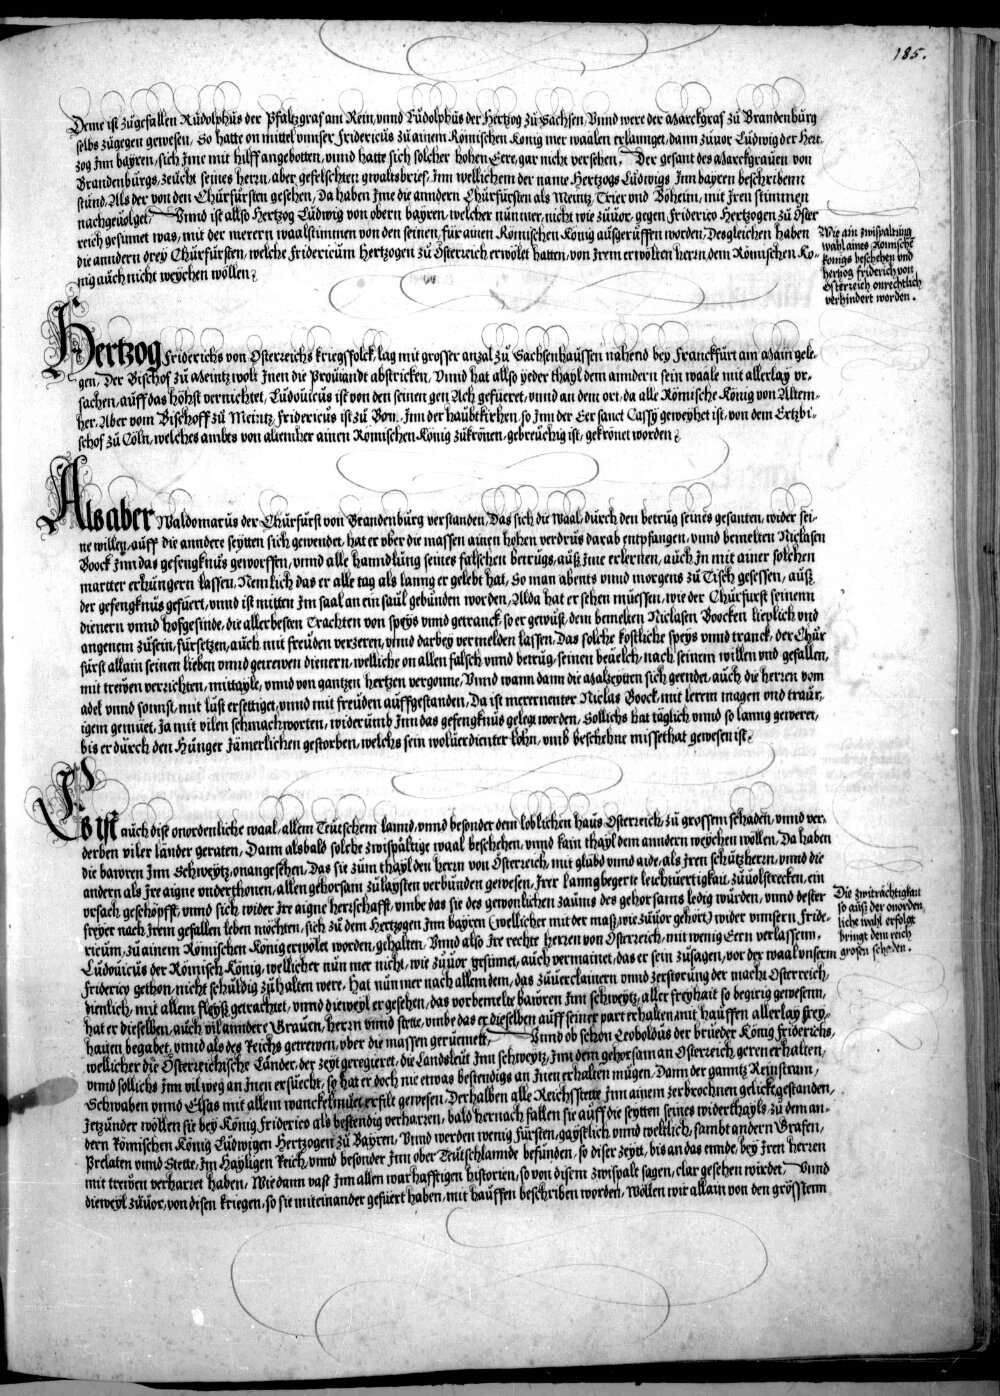 185.
Deme ist zůgefallen Rudolphus der Pfaltzgraf am Rein, vnnd Ludolphus der Hertzog zů Sachsen, Vnnd were der Marckgraf zů Brandenburg
selbs zůgegen gewesen, So hatte on mittel vnnser Fridericus zů ainem Römischen König mer waalen erlannget, dann zůuor Ludwig der Hert-
zog Inn bayren, sich Ime mit hilff angebotten, vnnd hatte sich solcher hohen Eere, gar nicht versehen. Der gesant des Marckgrauen von
Brandenburgs, zeücht seines herrn, aber gefelschten gwaltsbrief, Inn wellichem der name Hertzogs Ludwigs Inn bayren beschribenn
stůnd, Als der von den Churfürsten gesehen, Da haben Ime die anndern Churfürsten als Meintz, Trier vnd Böheim, mit Iren stimmen
nachgeuolget, Vnnd ist allso Hertzog Ludwig von obern bayren, welcher nunmer, nicht wie zůuor, gegen Friderico Hertzogen zů Öster
reich gesinnet was, mit der merern waalstimmen von den seinen, für ainen Römischen König außgerůffen worden, Desgleichen haben
die anndern drey Churfürsten, welche Fridericum Hertzogen zů Österreich erwölet hatten, von Irem erwölten herrn, dem Römischen Kö-
nig auch nicht weychen wöllen.
Wie ain zwispaltung
wahl aines Römische
Königs beschehen vnd
hertzog friderich von
Österreich onrechtlich
verhindert worden.
Hertzog Friderichs von Österreichs kriegsfolck, lag mit grosser anzal zů Sachsenhaussen nahend bey Franckfurt am Main gele-
gen, Der Bischof zů Meintz wolt Inen die Prouiandt abstricken, Vnnd hat allso yeder thayl dem anndern sein waale mit allerlay vr-
sachen, auff das höhst vernichtet, Ludouicus ist von den seinen gen Ach gefüeret, vnnd an dem ort, da alle Römische König von Altem-
her, Aber vom Bischoff zů Meintz, Fridericus ist zů Bon, Inn der haubtkirhen, so Inn der Eer sanct Cassy geweyhet ist, von dem Ertzbi-
schof zů Cöln, welches ambts von altemher ainen Römischen König zůkrönen, gebreuchig ist, gekrönet worden.
Als aber Waldomarus der Churfürst von Brandenburg verstanden, Das sich die Waal, durch den betrug seines gesanten, wider sei-
ne willen, auff die anndere seytten sich gewendet, hat er ober die massen ainen hohen verdrus darab entpfangen, vnnd bemelten Niclasen
Boock Inn das gefengknus geworffen, vnnd alle hanndlung seines falschen betrugs, auß Ime erlernen, auch In mit ainer solchen
martter erhungern lassen, Nemlich das er alle tag als lanng er gelebt hat, So man abents vnnd morgens zů Tisch gesessen, auß
der gefengknus gefüert, vnnd ist mitten Im saal an ein saul gebunden worden, Alda hat er sehen müessen, wie der Churfürst seinenn
dienern vnnd hofgesinde, die allerbesten Trachten von speys vnnd getranck, so er gewust, dem bemelten Niclasen Boocken lieplich vnd
angenem zůsein, fürsetzen, auch mit freuden verzeren, vnnd darbey vermelden lassen, Das solche kostliche speys vnnd tranck, der Chur
fürst allain seinen lieben vnnd getrewen dienern, welliche on allen falsch vnnd betrug, seinen beuelch, nach seinem willen vnd gefallen,
mit trewen verrichten, mittayle, vnnd von gantzen hertzen vergonne, Vnnd wann dann die Malzeytten sich geendet, auch die herren vom
adel vnnd sonnst, mit lust ersettiget, vnnd mit freuden auffgestanden, Da ist merernenter Niclas Boock, mit lerem magen vnd traur,
igem gemüet, Ja mit vilen schmachworten, widerumb Inn das gefengknus gelegt worden, Sollichs hat täglich vnnd so lanng geweret,
bis er durch den Hunger Jämerlichen gestorben, welchs sein wolüerdienter lohn, vmb beschehne missethat gewesen ist.
Es ist auch dise onordenliche waal, allem Teutschem lannd, vnnd besonder dem loblichen haus Österreich, zů grossem schaden, vnnd ver-
derben viler länder geraten, Dann alsbald solche zwispältige waal beschehen, vnnd kain thayl dem anndern weychen wöllen, Da haben
die bawren Inn Schweytz, onangesehen, Das sie zum thayl den herrn von Österreich, mit glübd vnnd aide, als Iren schützherrn, vnnd die
andern als Ire aigne vnderthonen, allen gehorsam zůlaysten verbunden gewesen, Irer lanngbegerte leichtuertigkait, zůuolstrecken, ein
vrsach geschöpfft, vnnd sich wider Ire aigne herrschafft, vmbe das sie des gewonlichen zaums des gehorsams ledig würden, vnnd dester
freyer nach Irem gefallen leben möchten, sich zů dem Hertzogen Inn bayren (wellicher mit der maß, wie zůuor gehört) wider vnnsern Fride-
ricum, zů ainem Römischen König erwölet worden, gehalten, Vnnd also Ire rechte herren von Österreich, mit wenig Eern verlassenn.
Ludouicus der Römisch König, wellicher nun mer nicht, wie zůuor gesinnet, auch vermainet, das er sein zůsagen, vor der waal vnserm
Friderico gethon, nicht schuldig zůhalten were, Hat nun mer nach allem dem, das zůuerclainern vnnd zerstörung der macht Österreich,
dienlich, mit allem fleyß getrachtet, vnnd dieweyl er gesehen, das vorbemelte bawren Inn schweytz, aller freyhait so begirig gewesenn,
hat er dieselben, auch vil anndere Grauen, herrn vnnd stette, vmbe das er dieselben auff seiner part erhalten, mit hauffen allerlay frey-
haiten begabet, vnnd als des Reichs getrewen, ober die massen gerüemett, Vnnd ob schon Leopoldus der brueder König Friderichs,
wellicher die Österreichische Länder, der zeyt geregieret, die Landsleut Inn schweytz, Inn dem gehorsam an Österreich, geren erhalten,
vnnd sollichs Inn vil weg an Inen ersůcht, so hat er doch nie etwas bestendigs an Inen erhalten mügen, Dann der ganntz Reinstram,
Schwaben vnnd Elsas mit allem wanckelmuet erfült gewesen, Derhalben alle Reichsstette Inn ainem zerbrochnen gelücke gestanden,
Jetzunder wöllen sie bey König Friderico als bestendig verharren, bald hernach fallen sie auff die seytten seines widerthayls zů dem an-
dern Römischen König Ludwigen Hertzogen zů Bayren, Vnnd werden wenig Fürsten, gaystlich vnnd weltlich, sambt andern Grafen,
Prelaten vnnd Stette, Im Hayligen Reich, vnnd besonder Inn ober Teutschlannde befunden, so diser zeytt, bis an das ennde, bey Iren herren
mit trewen verharret haben, Wie dann vast Inn allen warhafftigen historien, so von disem zwispalt sagen, clar gesehen wirdet. Vnnd
dieweyl zůuor, von disen kriegen, so sie miteinander gefüert haben, mit hauffen beschriben worden, Wöllen wir allain von den grösstenn
Die zwiträchtigkait
so auß der onorden,
licht wahl erfolgt
bringt dem reich
grosen schaden.